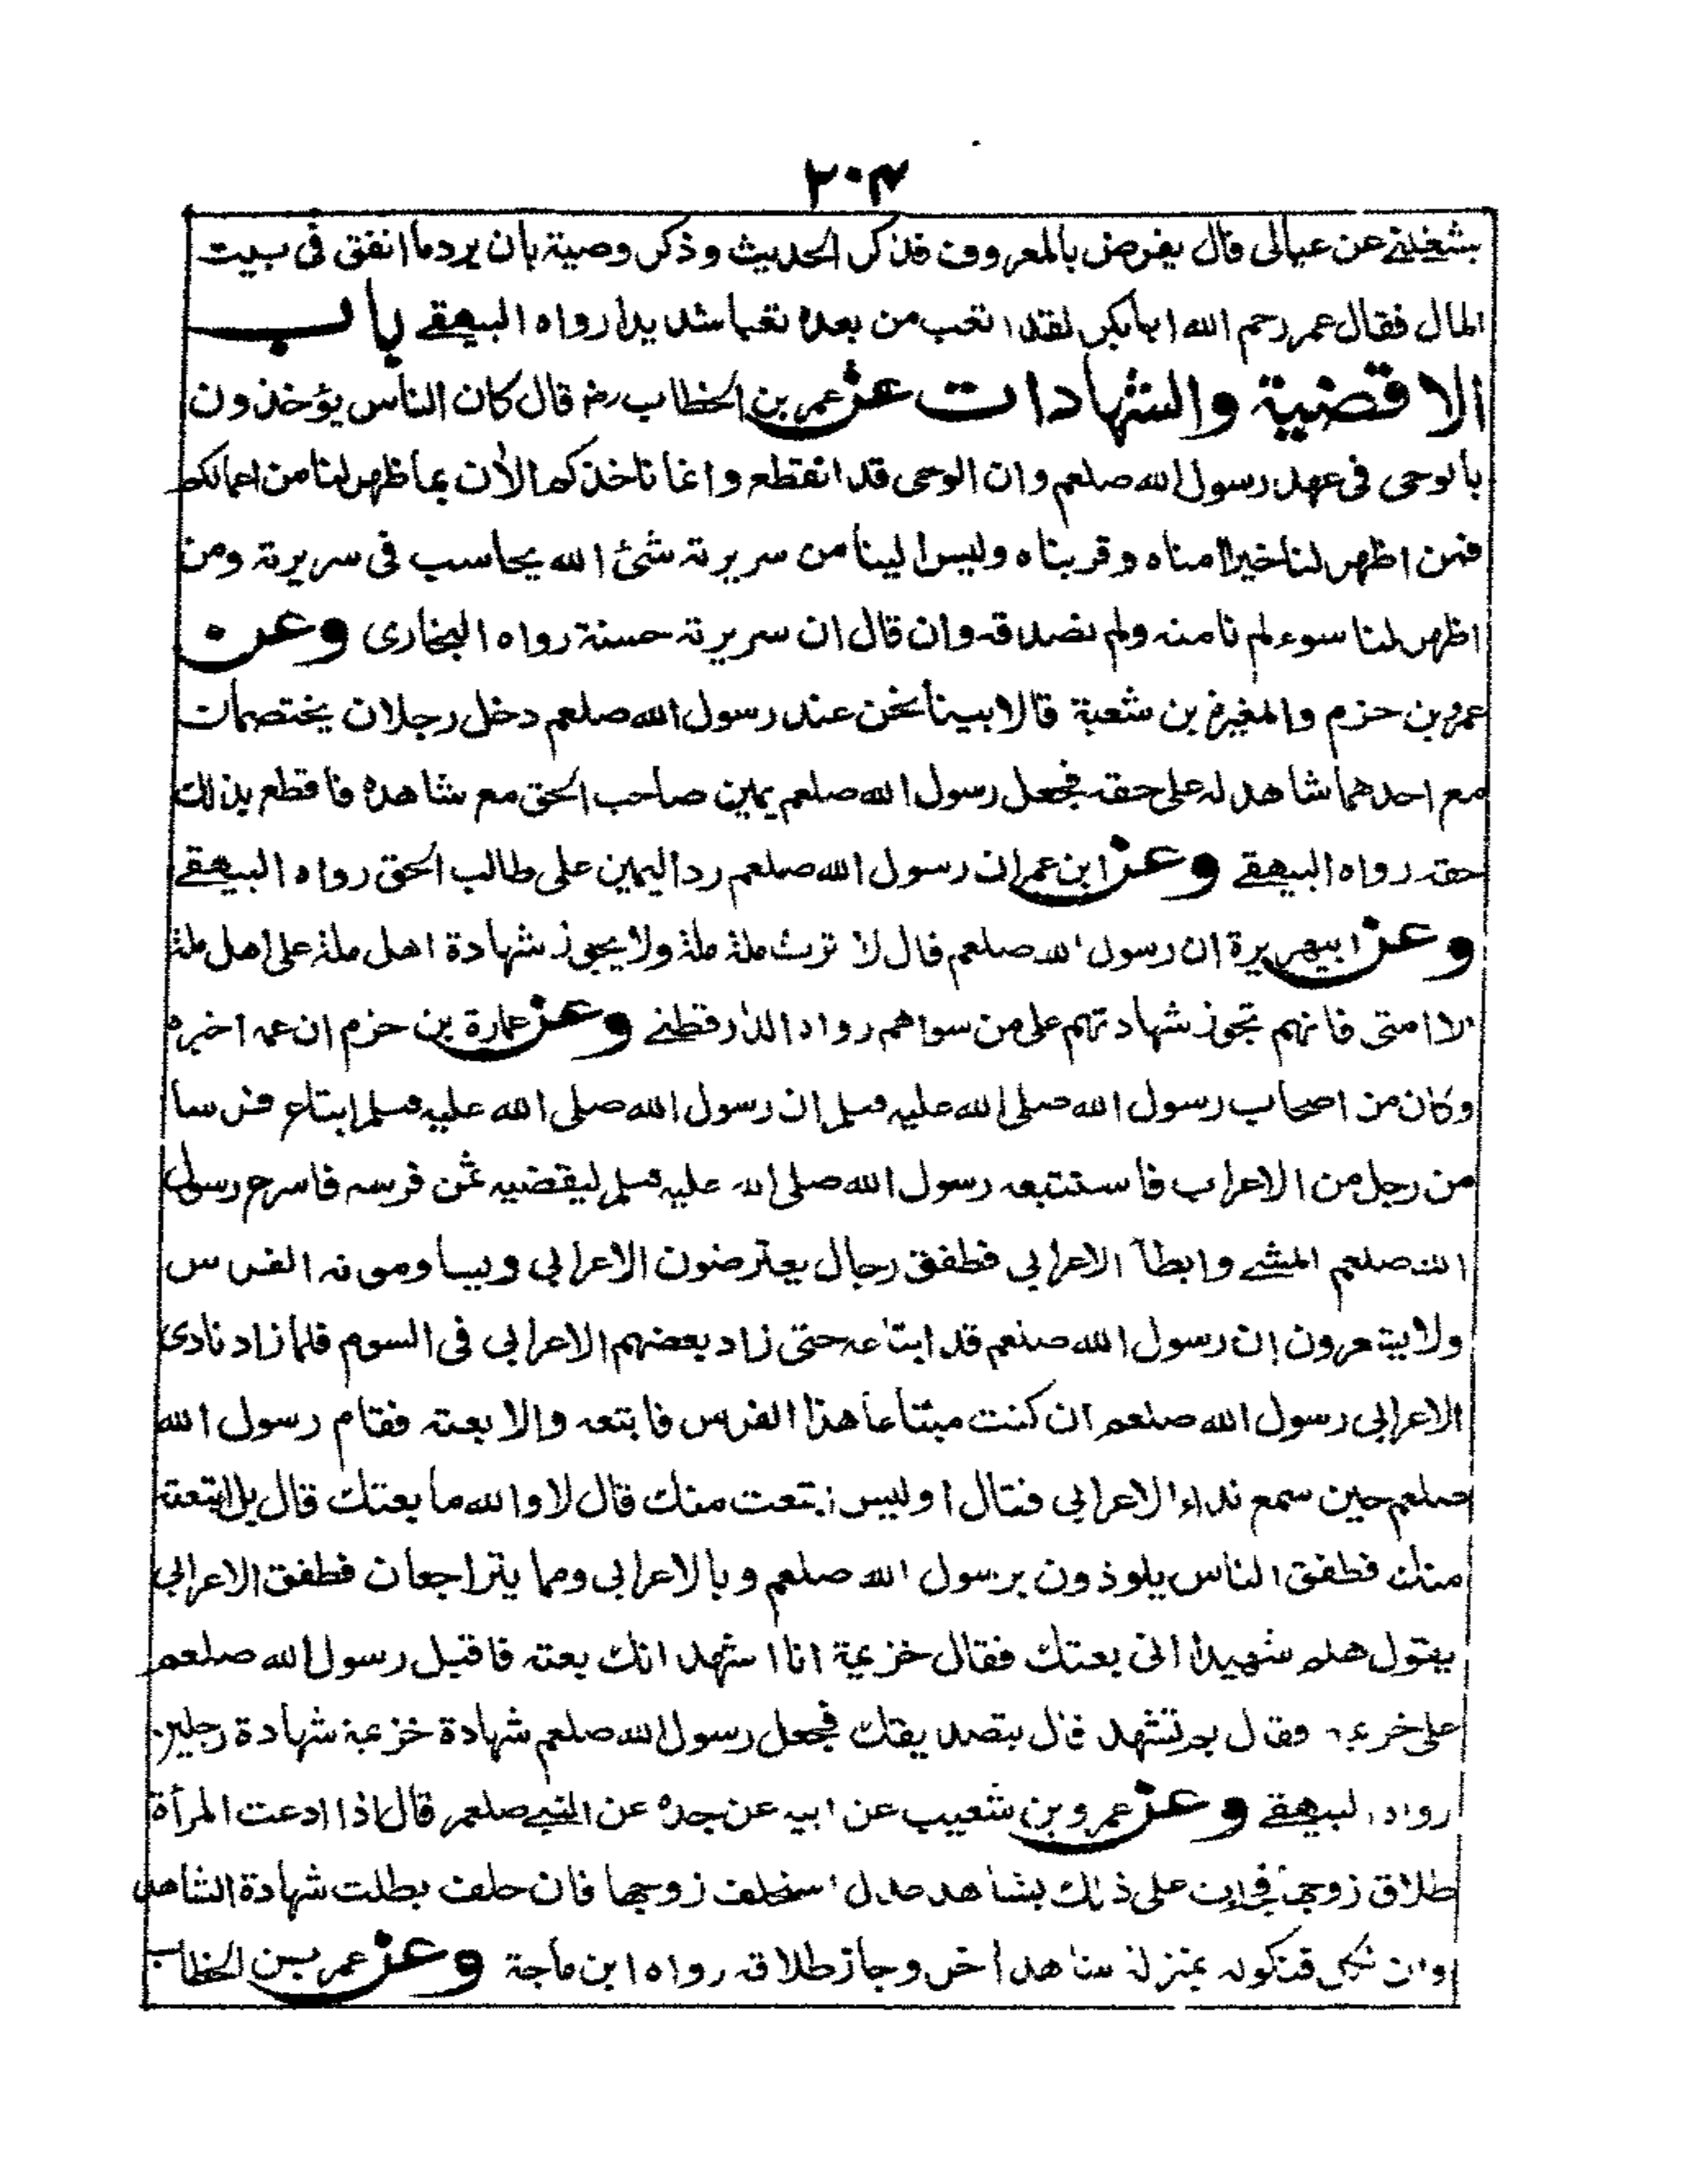 ٢٠٤
يشغلني عن عيالى قال يفرض بالمعروف فذكر الحديث وذكر وصية بان يرد ما انفق فى بيت
المال فقال عمر رحم الله ابا بكر لقد اتعب من بعده تعبا شديدا رواه البيهقے باب
الاقضية والشهادات عن عمر بن الخطاب رض قال كان الناس يؤخذون
بالوحى فى عهد رسول الله صلعم وان الوحى قد انقطع وانما ناخذكم الأن بما ظهر لنا من اعمالكم
فمن اظهر لنا خيرا امناه وقربناه وليس الينا من سريرته شئ الله يحاسب فى سريرته ومن
اظهر لنا سوء لم نامنه ولم نصدقه وان قال ان سريرته حسنة رواه البخارى وعن
عمرو بن حزم والمغيرة بن شعبة قالا بينا نحن عند رسول الله صلعم دخل رجلان يختصمان
مع احدهما شاهد له على حقه فجعل رسول الله صلعم يمين صاحب الحق مع شاهده فاقطع بذلك
حقه رواه البيهقے وعن ابن عمر ان رسول الله صلعم رد اليمين على طالب الحق رواه البيهقے
وعن ابيهريرة ان رسول الله صلعم قال لا ترث ملة ملة ولا يجوز شهادة اهل ملة على اهل ملة
الا امتى فانهم تجوز شهادتهم على من سواهم رواه الدارقطنے وعن عمارة بن حزم ان عمه اخبره
وكان من اصحاب رسول الله صلى الله عليه وسلم ان رسول الله صلى الله عليه وسلم ابتاع فرسا
من رجل من الاعراب فاستتبعه رسول الله صلى الله عليه وسلم ليقضيه ثمن فرسه فاسرع رسول
الله صلعم المشے وابطأ الاعرابي فطفق رجال يعترضون الاعرابي ويساومونه الفرس
ولا يشعرون ان رسول الله صلعم قد ابتاعه حتى زاد بعضهم الاعرابي فى السوم فلما زاد نادى
الاعرابى رسول الله صلعم ان كنت مبتاعا هذا الفرس فابتعه والا بعته فقام رسول الله
صلعم حين سمع نداء الاعرابي فقال اوليس ابتعت منك قال لا والله ما بعتك قال بل ابتعته
منك فطفق الناس يلوذون برسول الله صلعم وبالاعرابى وهما يتراجعان فطفق الاعرابي
يقول هلم شهيدا انى بعتك فقال خزيمة انا اشهد انك بعته فاقبل رسول الله صلعم
على خزيمة وقال بم تشهد قال بتصديقك فجعل رسول الله صلعم شهادة خزيمة شهادة رجلين
رواه البيهقے وعن عمرو بن شعيب عن ابيه عن جده عن النبے صلعم قال اذا ادعت المرأة
طلاق زوجها فجاءت على ذلك بشاهد عدل استحلف زوجها فان حلف بطلت شهادة الشاهد
وان نكل فنكوله بمنزلة شاهد اخر وجاز طلاقه رواه ابن ماجة وعن عمر بن الخطاب